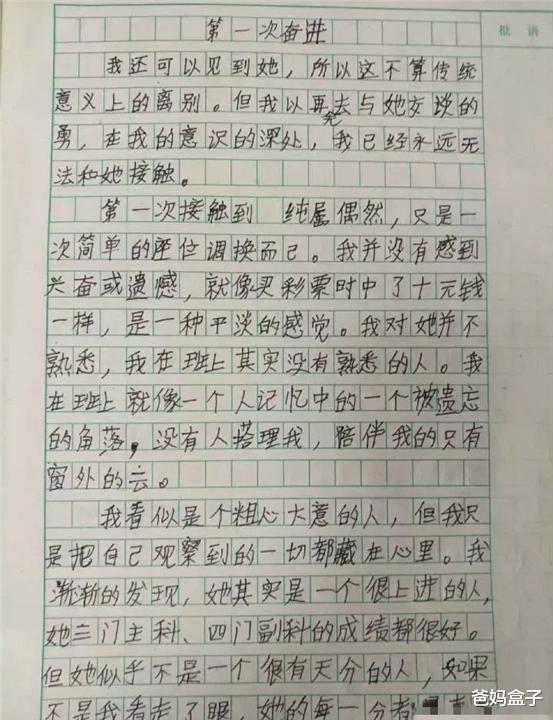 第一次奋进
批语
我还可以见到她,所以这不算传统
意义上的离别。但我以再去与她交谈的
勇,在我的意识的深处,我已经永远无
法和她接触。
第一次接触到 纯属偶然,只是一
次简单的座位调换而已。我并没有感到
兴奋或遗憾,就像买彩票时中了十元钱
一样,是一种平淡的感觉。我对她并不
熟悉,我在班上其实没有熟悉的人。我
在班上就像一个人记忆中的一个被遗忘
的角落,没有人搭理我,陪伴我的只有
窗外的云。
我看似是个粗心大意的人,但我只
是把自己观察到的一切都藏在心里。我
渐渐的发现,她其实是一个很上进的人,
她三门主科、四门副科的成绩都很好。
但她似乎不是一个很有天分的人,如果
不是我看走了眼,她的每一分都
爸妈盒子